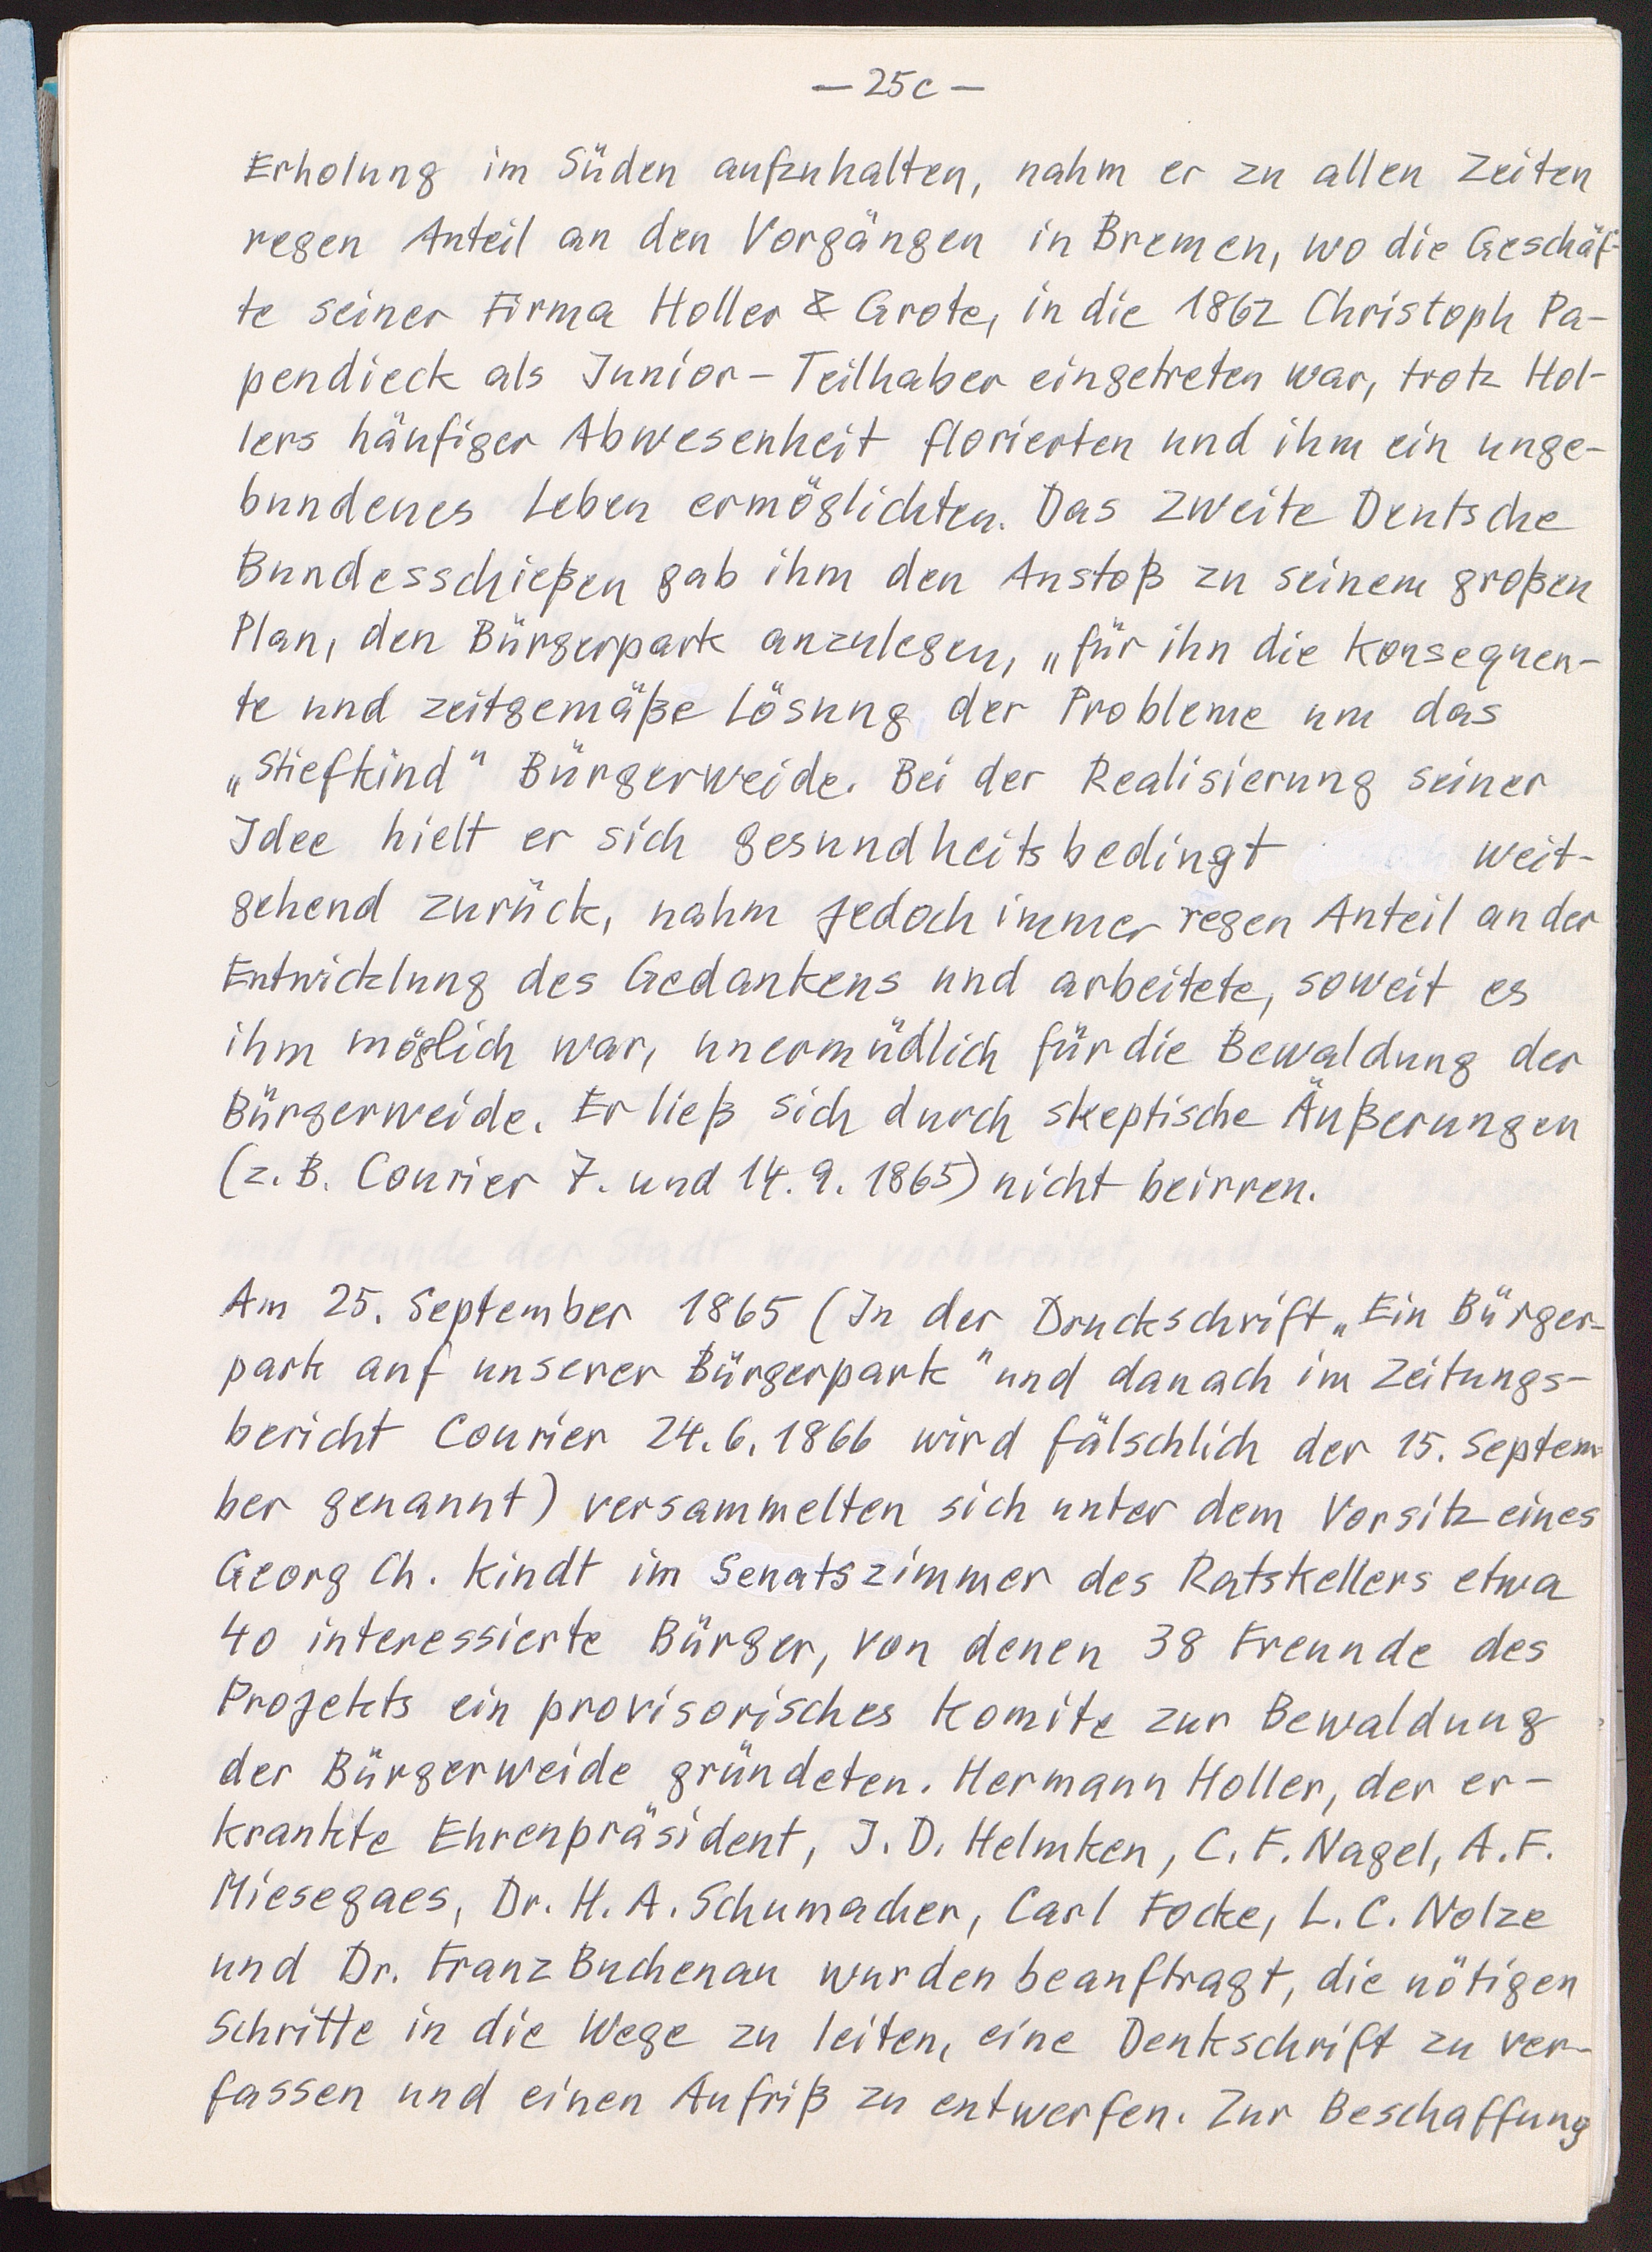 — 25c —
Erholung im Süden aufzuhalten, nahm er zu allen Zeiten
regen Anteil an den Vorgängen in Bremen, wo die Geschäf-
te seiner Firma Holler & Grote, in die 1862 Christoph Pa-
pendieck als Junior-Teilhaber eingetreten war, trotz Hol-
lers häufiger Abwesenheit florierten und ihm ein unge-
bundenes Leben ermöglichten. Das Zweite Deutsche
Bundesschießen gab ihm den Anstoß zu seinem großen
Plan, den Bürgerpark anzulegen, „für ihn die konsequen-
te und zeitgemäße Lösung der Probleme um das
„Stiefkind" Bürgerweide. Bei der Realisierung seiner
Idee hielt er sich gesundheitsbedingt weit-
gehend zurück, nahm jedoch immer regen Anteil an der
Entwicklung des Gedankens und arbeitete, soweit es
ihm möglich war, unermüdlich für die Bewaldung der
Bürgerweide. Er ließ sich durch skeptische Äußerungen
(z.B. Courier 7. und 14.9.1865) nicht beirren.
Am 25. September 1865 (In der Druckschrift „Ein Bürger-
park auf unserer Bürgerpark" und danach im Zeitungs-
bericht Courier 24.6.1866 wird fälschlich der 15. Septem-
ber genannt) versammelten sich unter dem Vorsitz eines
Georg Ch. Kindt im Senatszimmer des Ratskellers etwa
40 interessierte Bürger, von denen 38 Freunde des
Projekts ein provisorisches Komite zur Bewaldung
der Bürgerweide gründeten. Hermann Holler, der er-
krankte Ehrenpräsident, J. D. Helmken, C. F. Nagel, A. F.
Miesegaes, Dr. H. A. Schumacher, Carl Focke, L. C. Nolze
und Dr. Franz Buchenau wurden beauftragt, die nötigen
Schritte in die Wege zu leiten, eine Denkschrift zu ver-
fassen und einen Aufriß zu entwerfen. Zur Beschaffung